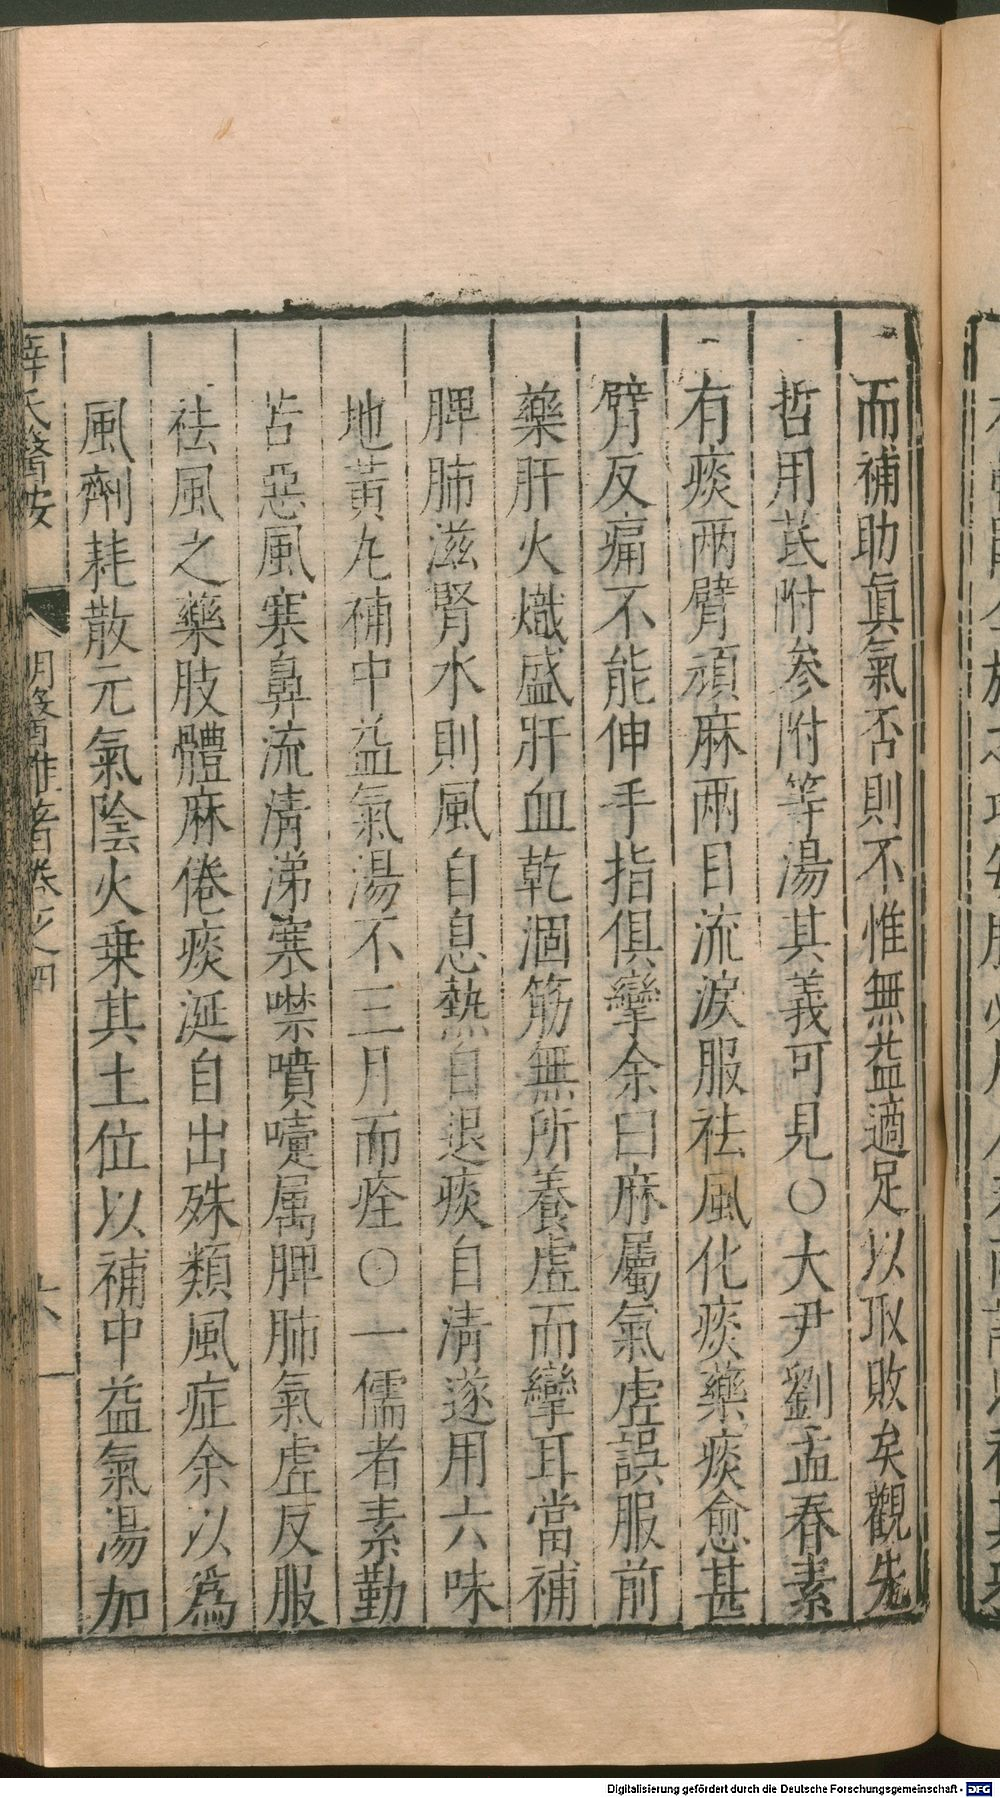 而補助眞氣否則不惟無益適足以取敗矣觀先
哲用芪附參附等湯其義可見○大尹劉孟春素
有痰兩臂頑麻兩目流淚服祛風化痰藥痰愈甚
臂反痛不能伸手指俱攣余曰麻屬氣虛誤服前
藥肝火熾盛肝血乾涸筋無所養虛而攣耳當補
脾肺滋腎水則風自息熱自退痰自淸遂用六味
地黃丸補中益氣湯不三月而痊○一儒者素勤
苦惡風寒鼻流淸涕寒噤噴嚏属脾肺氣虛反服
祛風之藥肢體麻倦痰涎自出殊類風症余以爲
風劑耗散元氣陰火乗其土位以補中益氣湯加
薛氏醫按 明醫雜著卷之四 六
Digitalisierung gefördert durch die Deutsche Forschungsgemeinschaft - DFG